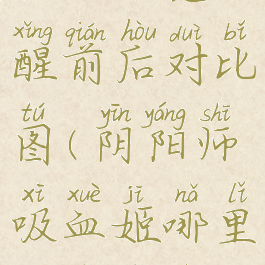 xǐng qián hòu duì bǐ
醒前后对比
tú yīn yáng shī
图(阴阳师
xī xuè jī nǎ lǐ
吸血姬哪里